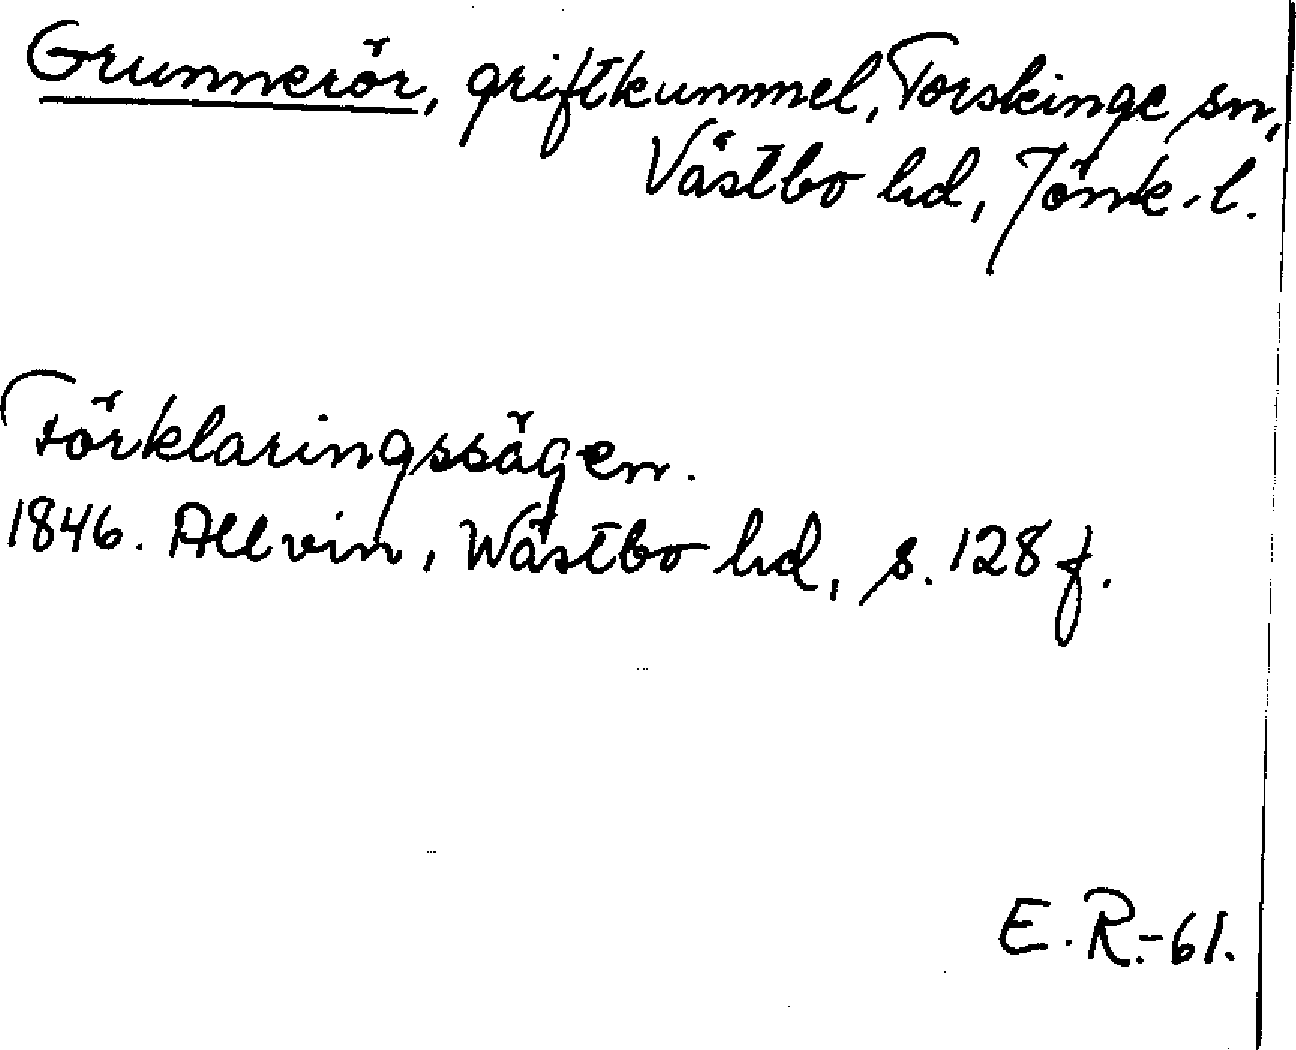 Grunnerör, griftkummel, Torskinge sn,
Västbo hd, Jönk. l.
Förklaringssägen.
1846. Allvin, Wästbo hd, s. 128 f.
E. R.-61.